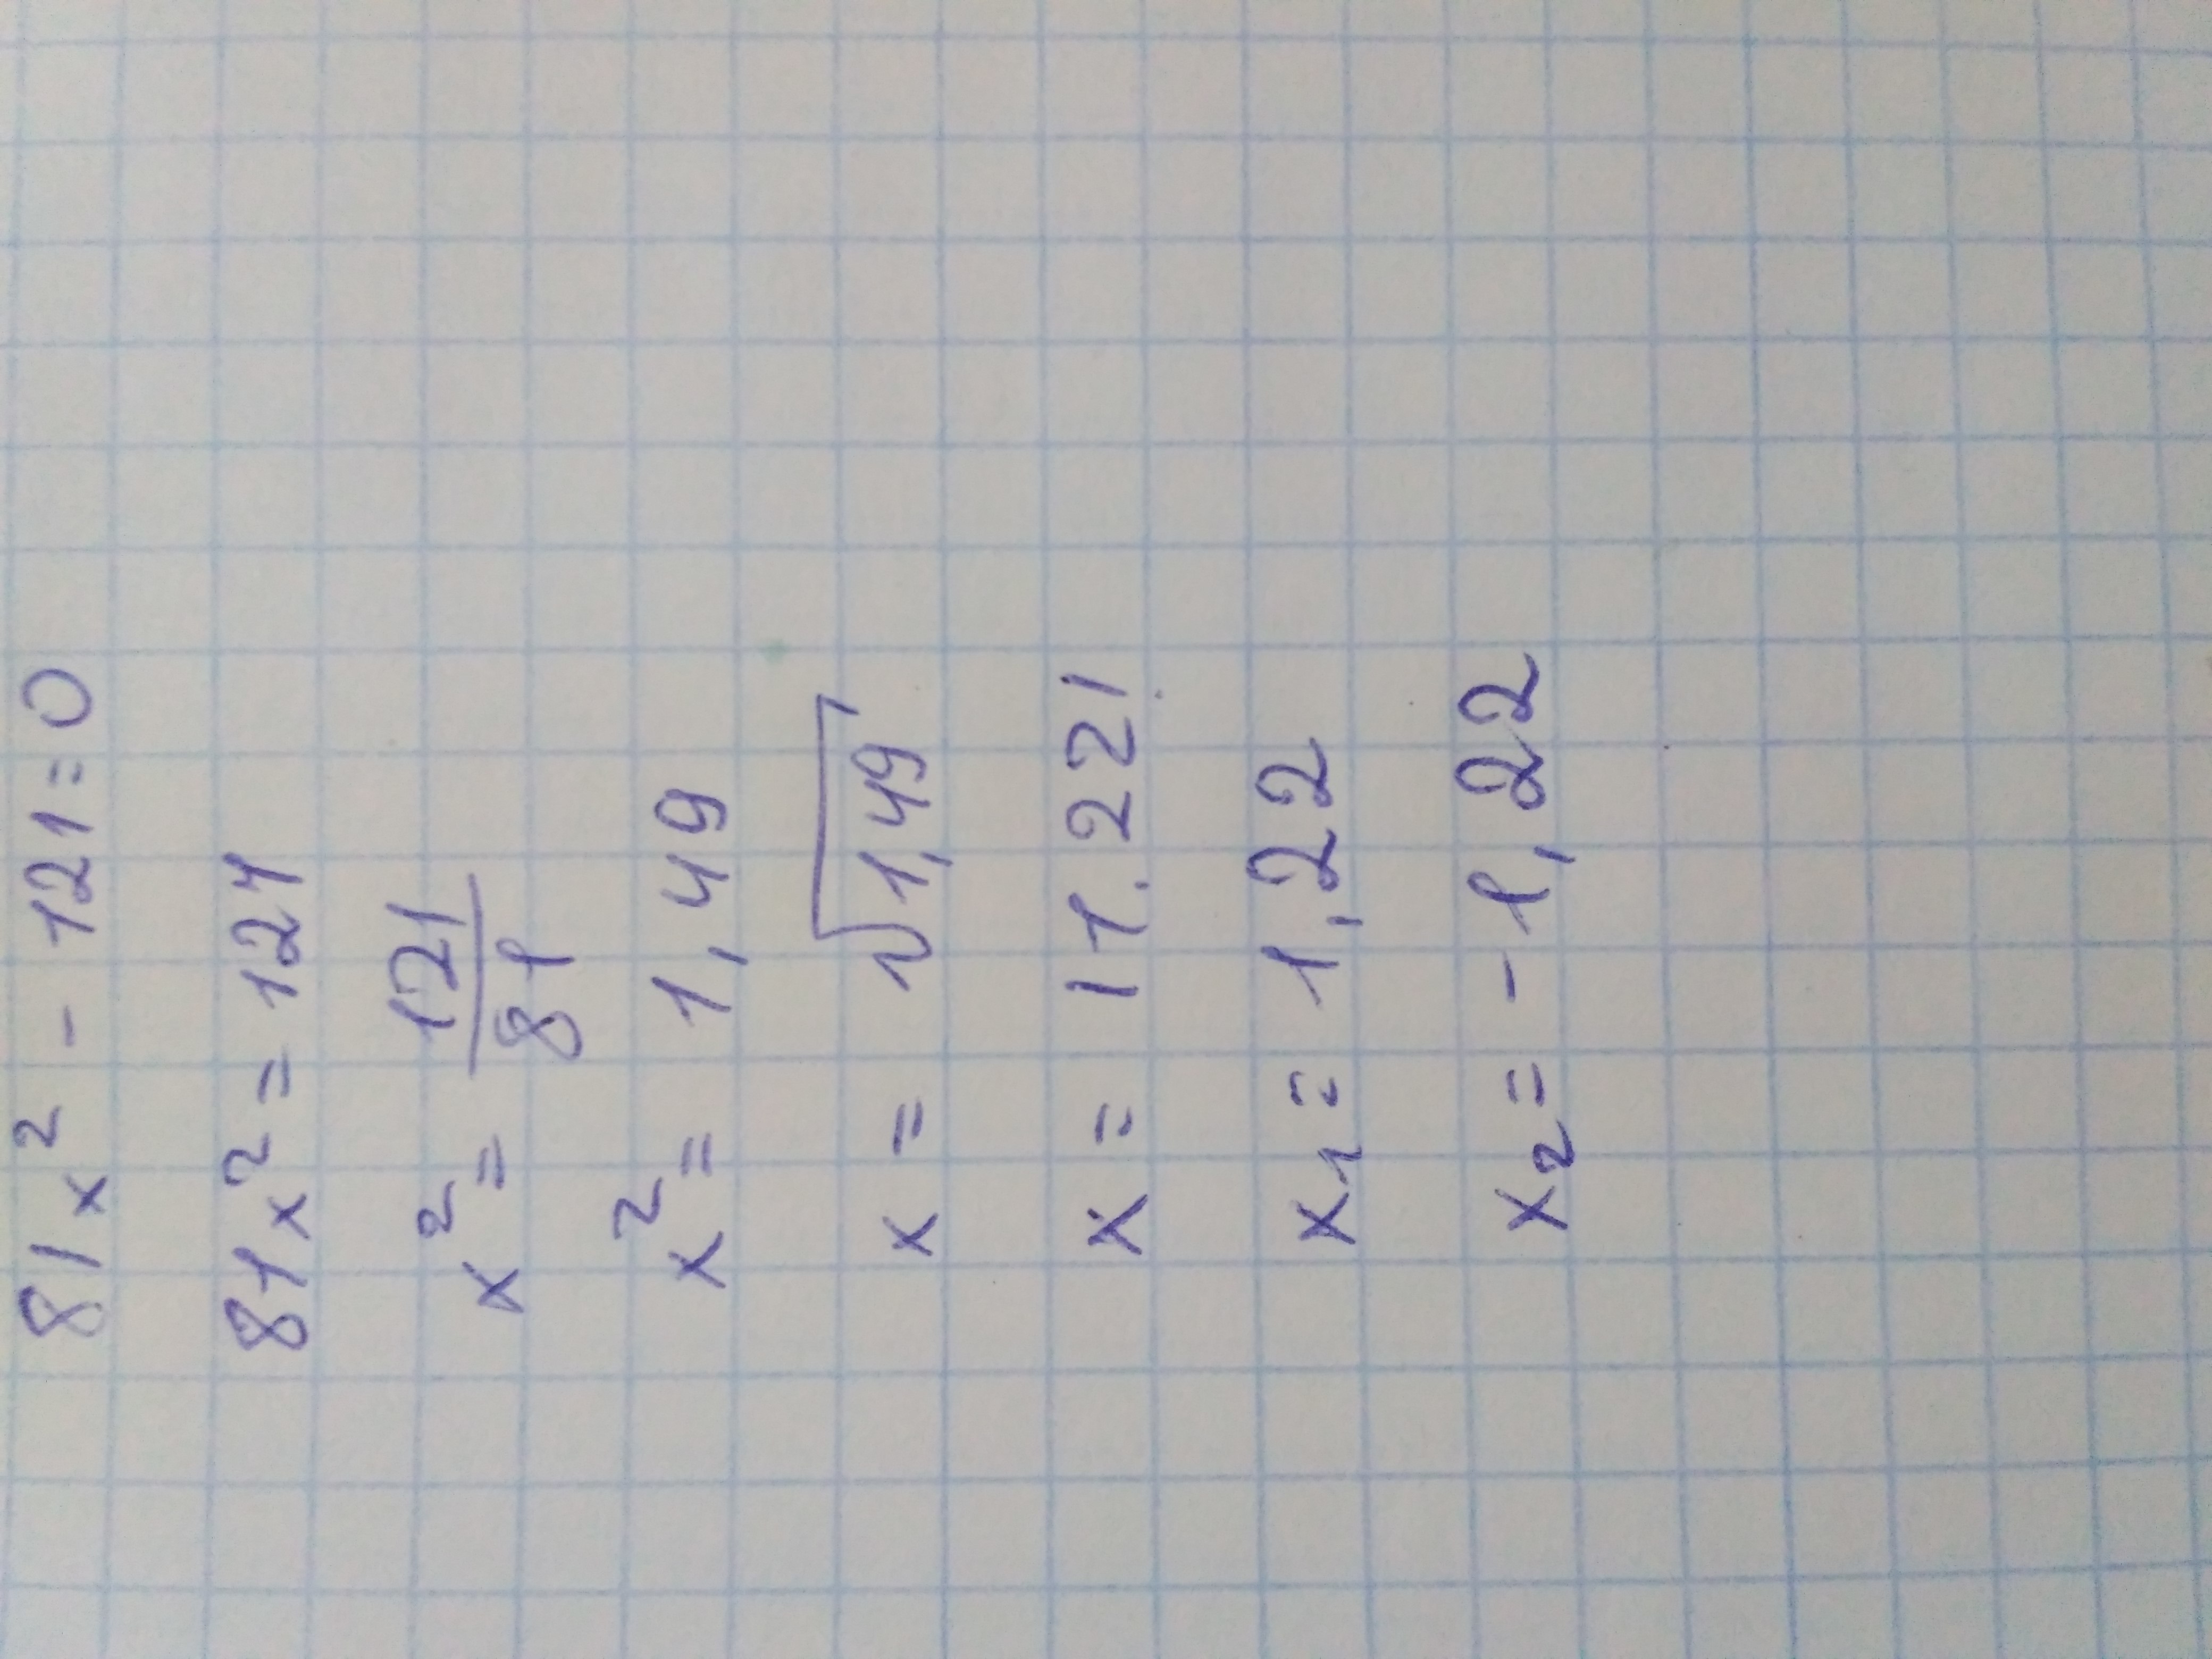 81x² - 121=0
81x² = 121
x² = 121/81
x² = 1,49
x = √1,49
x = |1.22|
x₁ = 1,22
x₂ = -1,22